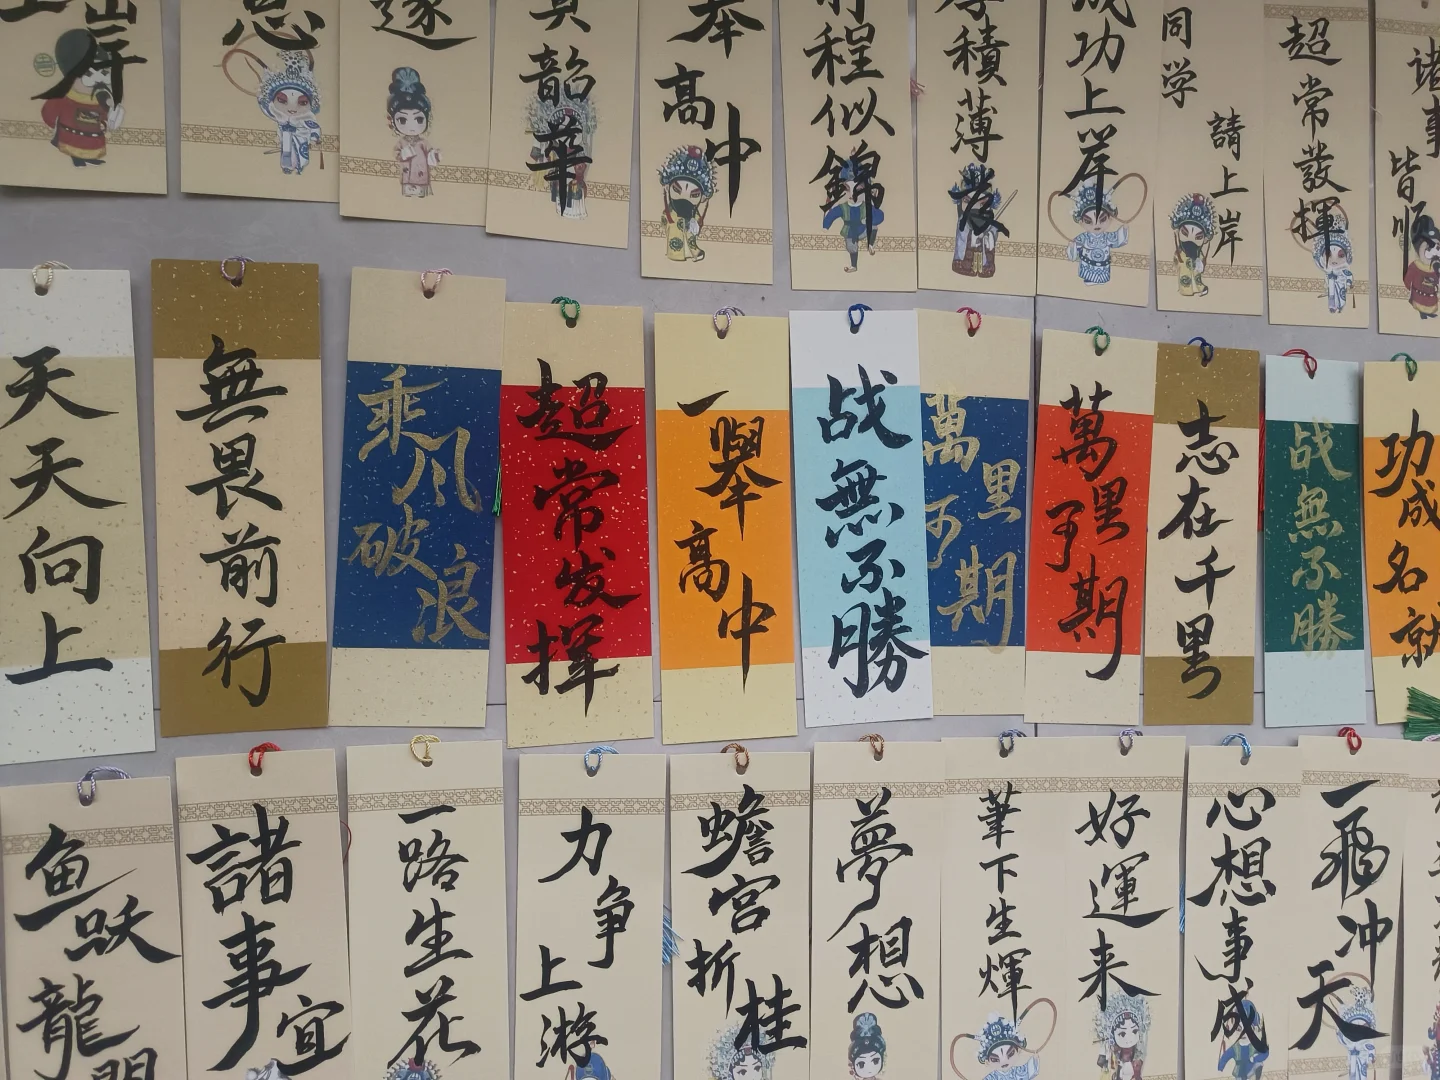 岸
忌
逐
韶華
举高中
前程似錦
厚積薄發
成功上岸
同学
請上岸
超常發揮
诸事皆順
天天向上
無畏前行
乘风破浪
超常发挥
一舉高中
战無不勝
萬里可期
萬里可期
志在千里
战無不勝
功成名就
鱼跃龍門
諸事宜
一路生花
力争上游
蟾宫折桂
夢想
筆下生輝
好運来
心想事成
一飛冲天